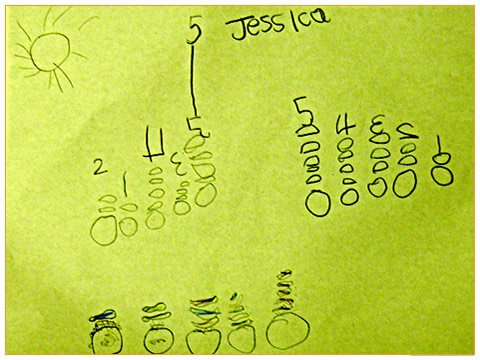 5 Jessica
5
5 4 3 2 1
2 1 4 3